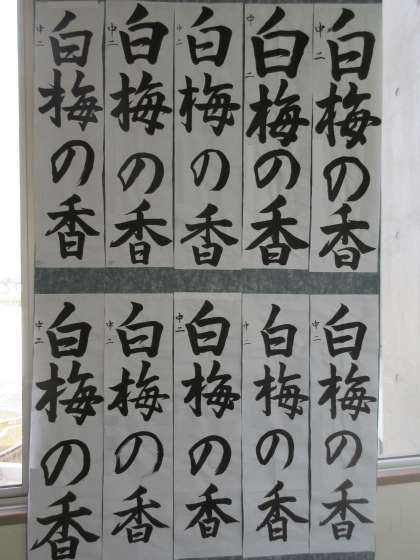 中二
白梅の香
中二
白梅の香
中二
白梅の香
中二
白梅の香
中二
白梅の香
中二
白梅の香
中二
白梅の香
中二
白梅の香
中二
白梅の香
中二
白梅の香